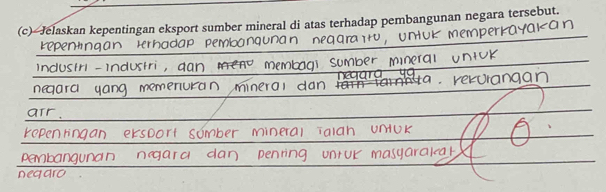 (c) Jelaskan kepentingan eksport sumber mineral di atas terhadap pembangunan negara tersebut.
kepentingan terhadap pembangunan negara itu, untuk memperkayakan
industri - industri, dan membagi sumber mineral untuk
negara yang memerlukan mineral dan negara yg kekurangan
air.
kepentingan eksport sumber mineral ialah untuk
pembangunan negara dan penting untuk masyarakat
negara.
0.